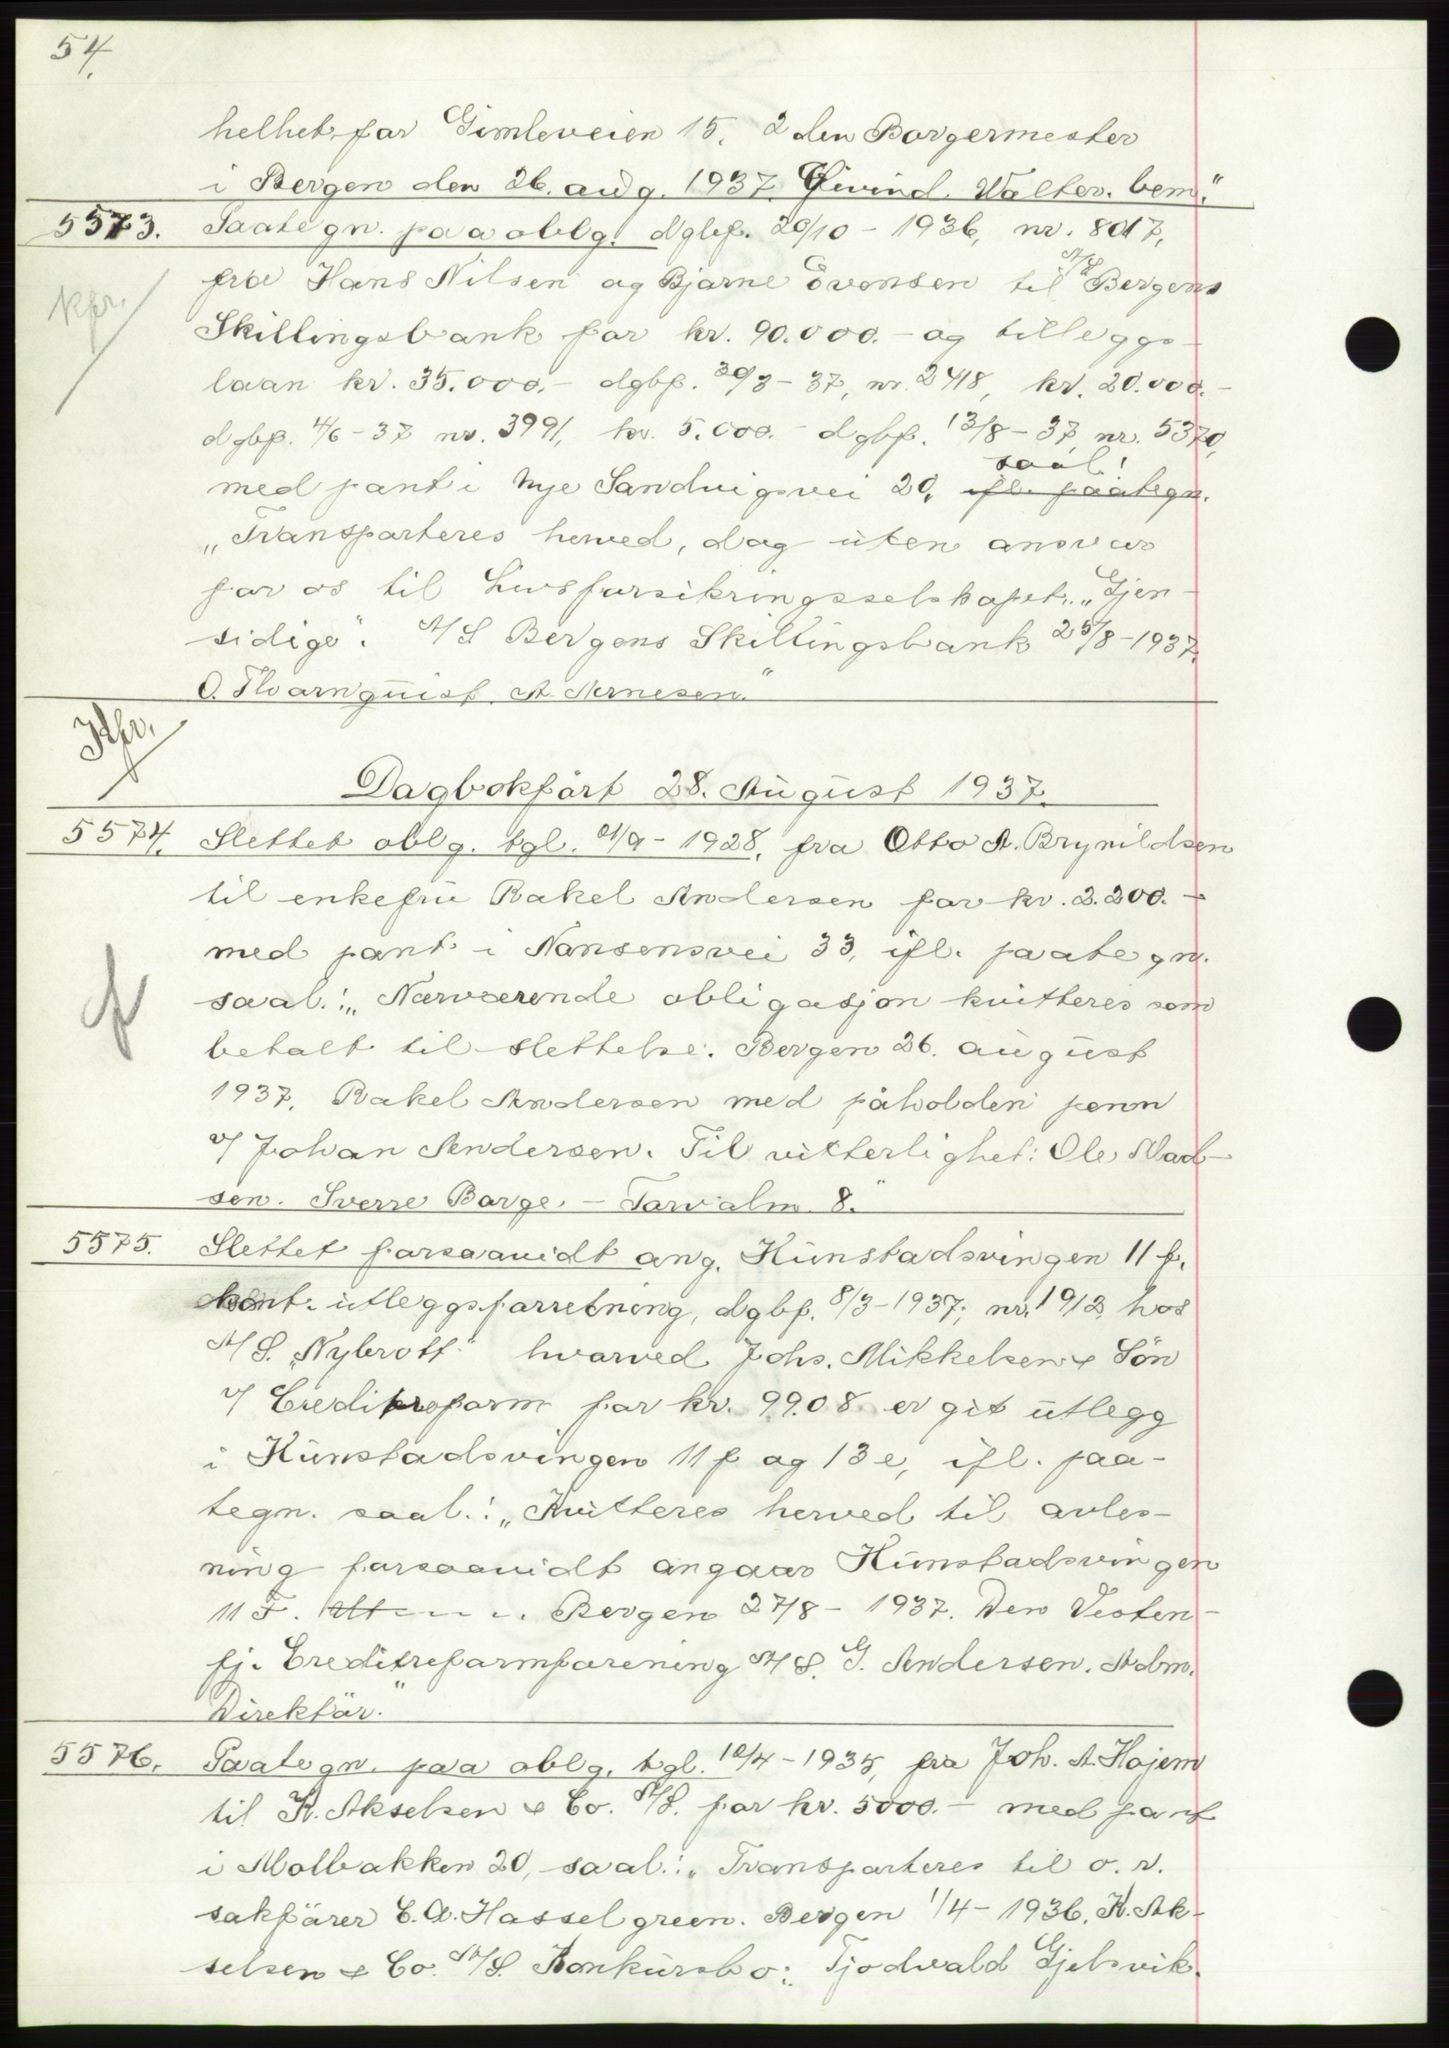 54.
helhet for Gimleveien 15. 2den Borgermester
i Bergen den 26. aug. 1937 Eivind Walter. bem."
5573. Paategn. paa oblg. dgbf. 20/10 - 1936, nr. 8017,
kfr. fra Hans Nilsen og Bjarne Evensen til A/S Bergens
Skillingsbank for kr. 90.000.- og tilleggs-
laan kr. 35.000.- dgbf. 30/3-37, nr. 2418, kr. 20.000.-
dgbf. 4/6-37 nr. 3991, kr. 5.000.- dgbf. 13/8-37, nr. 5370,
saal.:
med pant i Nye Sandvigsvei 20, ifl. paategn.
„Transporteres herved, dog uten ansvar
for os til Livsforsikringsselskapet „Gjen-
sidige". A/S Bergens Skillingsbank 25/8-1937.
O. Thornquist A. Arnesen."
Kfr.
Dagbokført 28. August 1937.
5574. Slettet oblg. tgl. 21/9-1928, fra Otto A. Brynildsen
til enkefru Rakel Andersen for kr. 2.200.-
med pant i Nansensvei 33, ifl. paategn.
saal.: „Nærværende obligasjon kvitteres som
betalt til slettelse. Bergen 26. august
1937. Rakel Andersen med påholden penn
v/ Johan Andersen. Til vitterlighet: Ole Mad-
sen. Sverre Borge. - Torvalm. 8."
5575. Slettet forsaavidt ang. Kunstadsvingen 11 f,
utleggsforretning, dgbf. 8/3-1937, nr. 1912, hos
A/S. „Nybrott" hvorved Johs. Mikkelsen & Søn
v/ Creditreform for kr. 99.08 er git utlegg
i Kunstadsvingen 11 f og 13 e, ifl. paa-
tegn. saal.: „Kvitteres herved til avles-
ning forsaavidt angaar Kunstadsvingen
11 F. Bergen 27/8-1937. Den Vesten-
fj. Creditreformforening A/S. G. Andersen. Adm.
Direktør."
5576. Paategn. paa oblg. tgl. 10/4-1935, fra Joh. A. Hojem
til K. Akselsen & Co. A/S. for kr. 5000.- med pant
i Molbakken 20, saal.: „Transporteres til o. r.
sakfører C. A. Hasselgreen. Bergen 1/4-1936. K. Ak-
selsen & Co. A/S. Konkursbo: Tjodvald Gjelsvik.